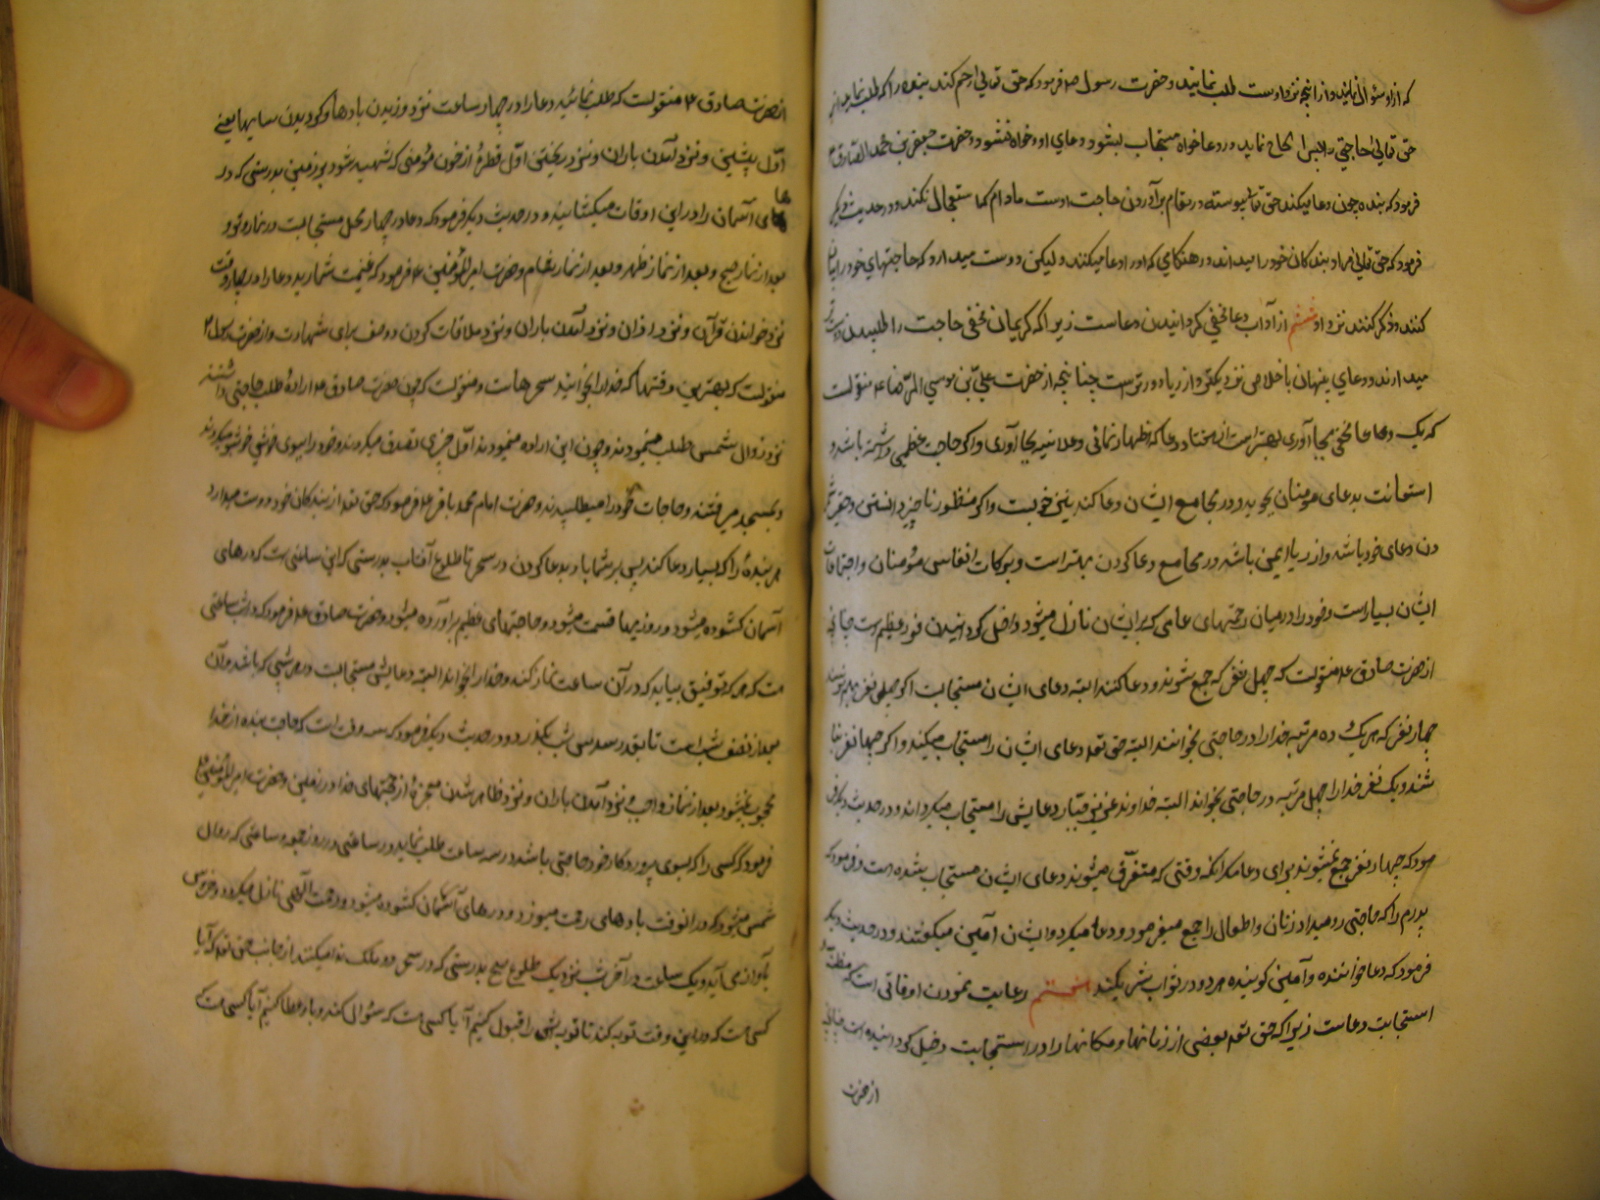 که از او سؤال نمایند و از آنچه نزد اوست طلب نمایند و حضرت رسول ص فرمود که حق تعالی رحم کند بنده را که طلب نماید از
حق تعالی حاجتی پس الحاح نماید در دعا خواه مستجاب بشود دعای او و خواه نشود و حضرت جعفر بن محمد الصادق ع
فرمود که بنده چون دعا میکند حق تعالی پیوسته در مقام برآوردن حاجت اوست مادام که استعجال نکند و در حدیث دیگر
فرمود که حق تعالی مراد بندکان خود را میداند در هنکامی که او را دعا میکنند و لیکن دوست میدارد که حاجتهای خود را بیان
کنند و ذکر کنند نزد او ششم از آداب دعا مخفی کردانیدن دعاست زیرا که کریمان مخفی حاجت را طلبیدن دوست‌تر
میدارند و دعای پنهان باخلاص نزدیکتر و از ریا دورترست چنانچه از حضرت علی بن موسی الرضا ع منقولست
که یک دعا که مخفی بجا آوری بهتر است از هفتاد دعا که اظهار نمائی و علانیه بجا آوری و اکر حاجت عظیمی داشته باشد و
استعانت بدعای مؤمنان بجوید و در مجامع ایشان دعا کند نیز خوبست و اکر منظورنا چیز دانستن و حقیر شمر
دن دعای خود باشد و از ریا ایمن باشد در مجامع دعا کردن بهتر است و برکات انفاس مؤمنان و اجتماعات
ایشان بسیار است و خود را در میان رحمتهای عامی که بر ایشان نازل میشود داخل کردانیدن فوز عظیم است چنانچه
از حضرت صادق ع منقولست که چهل نفر که جمع شوند و دعا کنند البته دعای ایشان مستجابست اکر چهل نفر بهم نرسند
چهار نفر که هر یک ده مرتبه خدا را در حاجتی بخوانند البته حق تعالی دعای ایشان را مستجاب میکند و اکر چهار نفر نبا
شند و یک نفر خدا را چهل مرتبه در حاجتی بخواند البته خداوند عزیز جبار دعایش را مستجاب میکرداند و در حدیث دیکر فر
مود که چهار نفر جمع نمیشوند برای دعا مکر آنکه وقتی که متفرق میشوند دعای ایشان مستجاب شده است و فرمود که
پدرم را که حاجتی رو میداد زنان و اطفال را جمع میفرمود و دعا میکرد و ایشان آمین میکفتند و در حدیث دیکر
فرمود که دعا خواننده و آمین کوینده هر دو در ثواب شریکند هفتم رعایت نمودن اوقاتی است که مظنّهٔ
استجابت دعاست زیرا که حق تعالی بعضی از زمانها و مکانها را در استجابت دخیل کردانیده است چنانچه
از حضرت
از حضرت صادق ع منقولست که طلب نمائید دعا را در چهار ساعت نزد وزیدن بادها و کردیدن سایها یعنی
اول پیشین و نزد آمدن باران و نزد ریختن اول قطرهٔ از خون مؤمنی که شهید شود بر زمین بدرستی که در
های آسمان را در این اوقات میکشایند و در حدیث دیکر فرمود که دعا در چهار محل مستجابست در نماز وتر و
بعد از نماز صبح و بعد از نماز ظهر و بعد از نماز شام و حضرت امیر المؤمنین ع فرمود که غنیمت شمارید دعا را در چهار وقت
نزد خواندن قرآن و نزد اذان و نزد آمدن باران و نزد ملاقات کردن دو صف برای شهادت و از حضرت رسول ص
منقولست که بهترین وقتها که خدا را بخوانید سحرهاست و منقولست که چون حضرت صادق ع ارادهٔ طلب حاجتی داشتند
نزد زوال شمس طلب مینمودند و چون این اراده مینمودند اول چیزی تصدق میکردند و خود را ببوی خوشی خوشبو میکردند
و بمسجد میرفتند و حاجات خود را میطلبیدند و حضرت امام محمد باقر ع فرمود که حق تعالی از بندکان خود دوست میدارد
هر بندهٔ را که بسیار دعا کند پس بر شما باد بدعا کردن در سحر تا طلوع آفتاب بدرستی که این ساعتی ست که درهای
آسمان کشوده میشود و روزیها قسمت میشود و حاجتهای عظیم برآورده میشود و حضرت صادق ع فرمود که در شب ساعتی
هست که هر که توفیق بیابد که در آن ساعت نماز کند و خدا را بخواند البته دعایش مستجابست در هر شبی که باشد و آن
بعد از نصف شب است تا بقدر سدس شب بکذرد و در حدیث دیکر فرمود که سه وقت است که حاجت بنده از خدا
محجوب نمیشود بعد از نماز واجب و نزد آمدن باران و نزد ظاهر شدن معجزهٔ از حجتهای خدا در زمین و حضرت امیر المؤمنین ع
فرمود که کسی را که بسوی پروردکار خود حاجتی باشد در سه ساعت طلب نماید در ساعتی در روز جمعه و ساعتی که زوال
شمس میشود که در آنوقت بادهای رحمت میوزد و درهای آسمان کشوده میشود و رحمت الهی نازل میکردد و خروس
بآواز می‌آید و یک ساعت در آخر شب نزدیک طلوع صبح بدرستی که در سحر دو ملک ندا میکنند از جانب حق تعالی که آیا
کسی هست که در این وقت توبه کند تا توبه‌اش را قبول کنیم آیا کسی هست که سؤال کند و باو عطا کنیم آیا کسی هست که